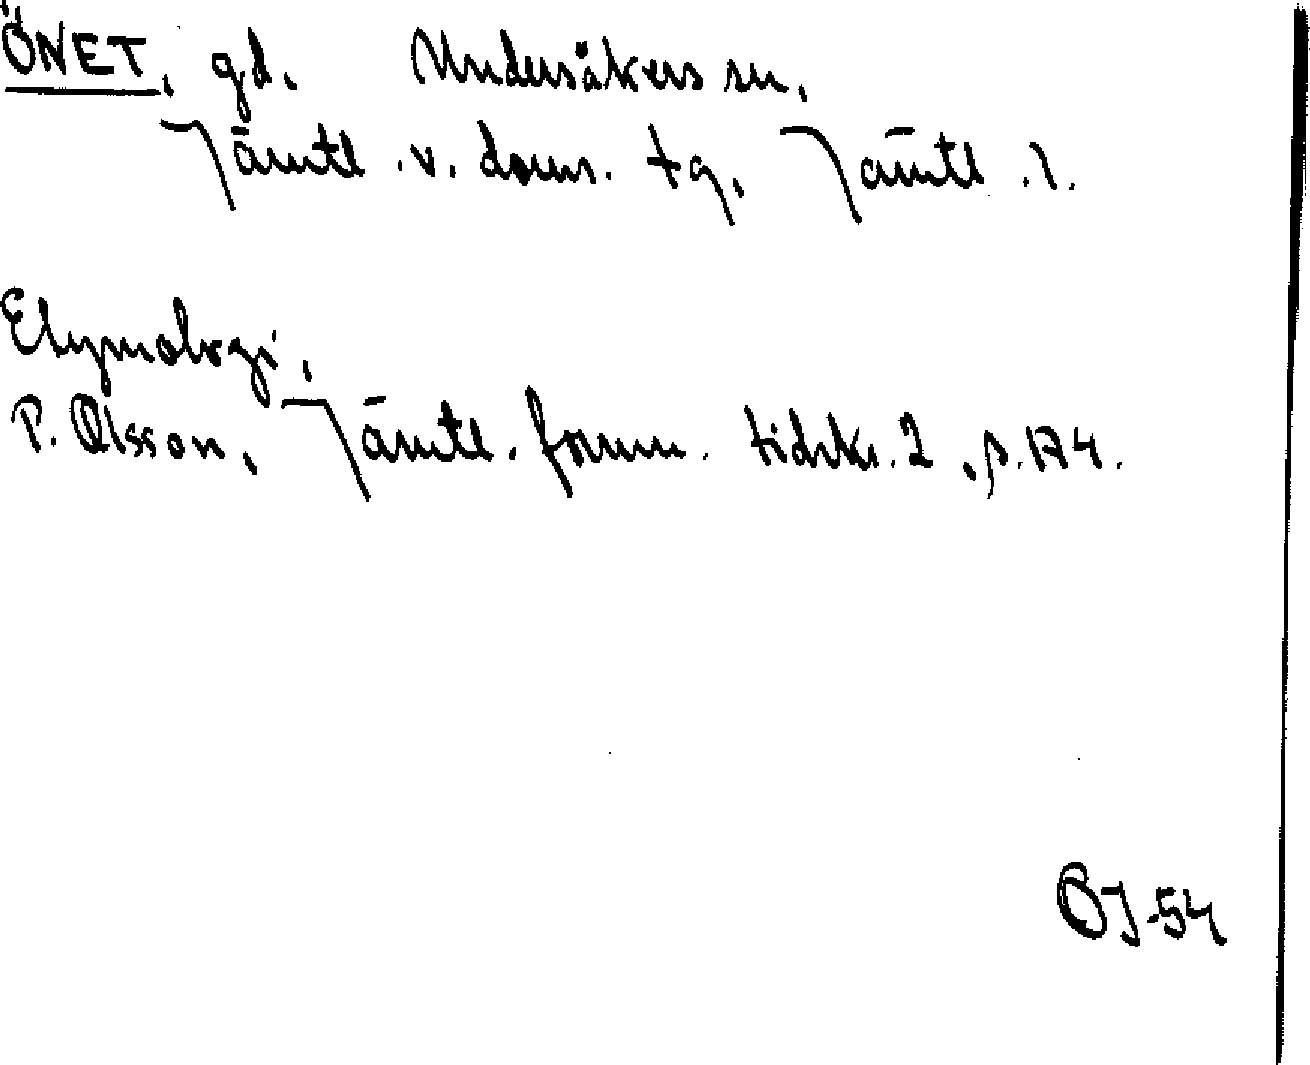 ÖNET, gd. Undersåkers sn,
Jämtl. v. doms. tg, Jämtl. l.
Etymologi,
P. Olsson, Jämtl. fornm. tidskr. 2, s. 174.
ÖJ-54